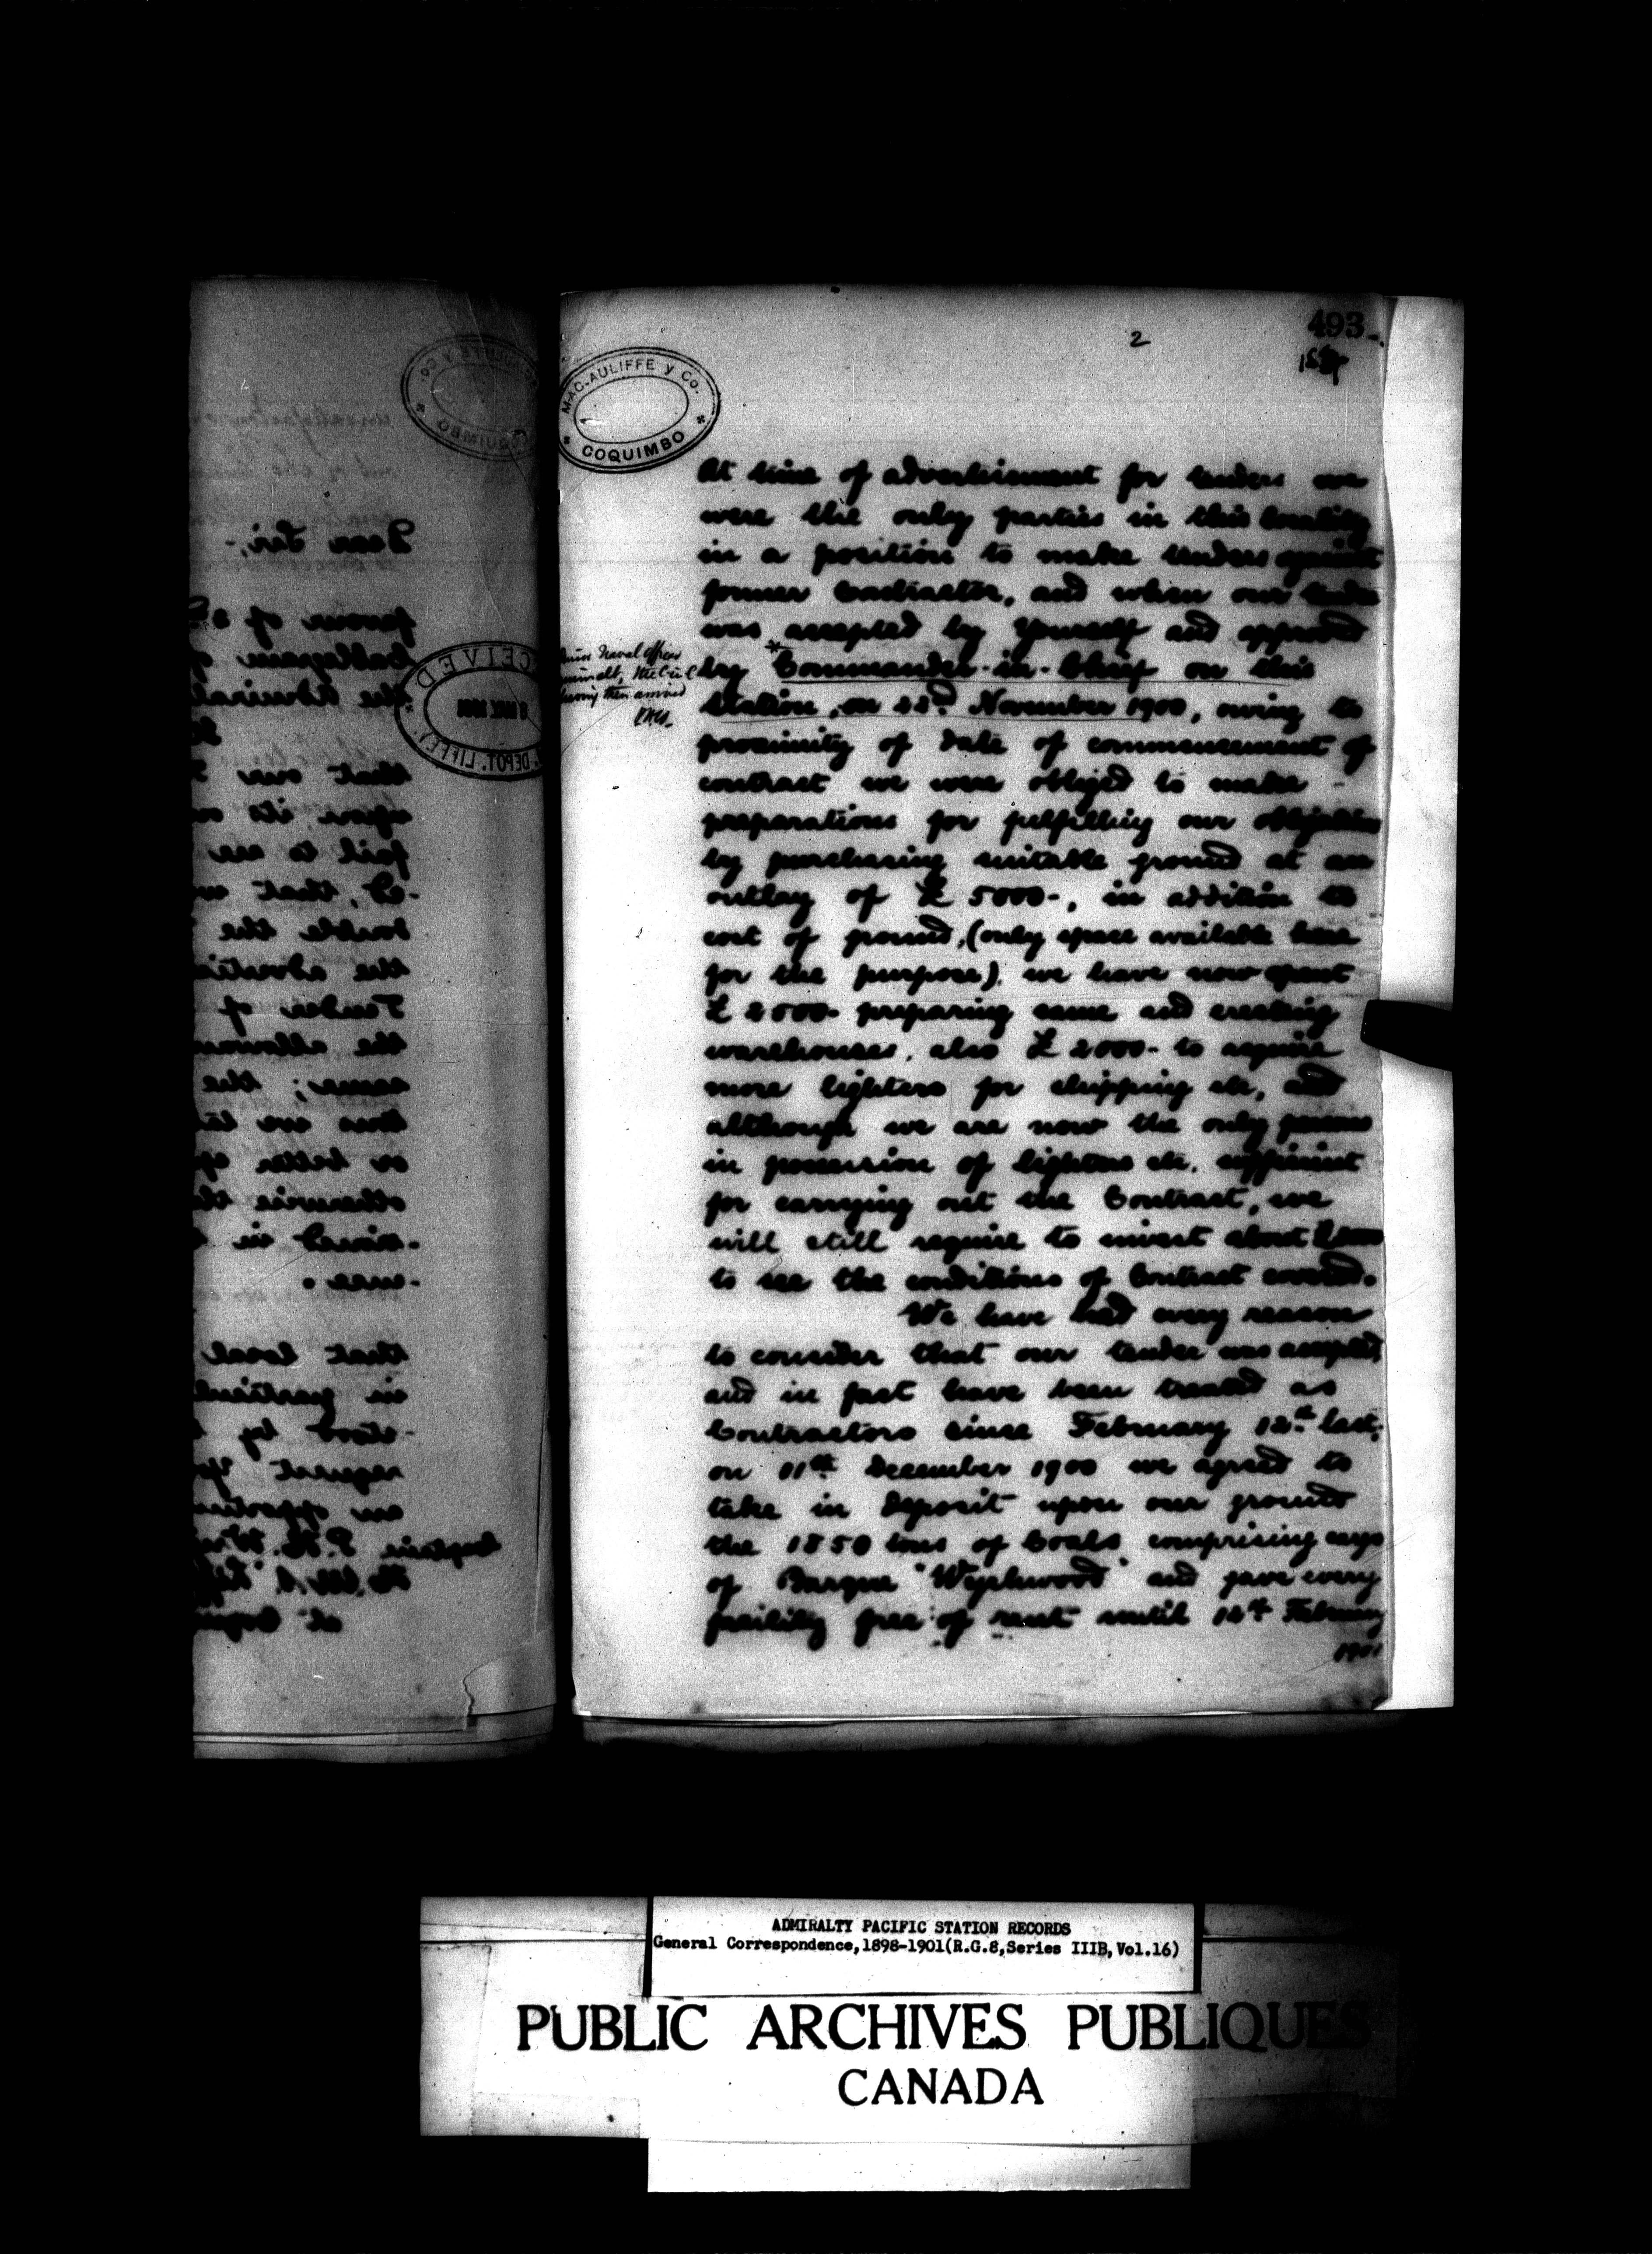 493
2
MAC-AULIFFE Y Co.
COQUIMBO
At time of advertisement for tenders we
were the only parties in this locality
in a position to make tenders against
former Contractor, and when our tender
was accepted by Yourself and approved
by Commander-in-Chief on this
Station, on 22nd November 1900, owing to
proximity of date of commencement of
contract we were obliged to make
preparations for fulfilling our obligation
by purchasing suitable ground at an
outlay of £ 5000-, in addition to
cost of ground, (only space available here
for the purpose), we have now spent
£ 2500- preparing same and erecting
warehouses, also £ 2000- to acquire
more lighters for shipping etc, and
although we are now the only persons
in possession of lighters etc. sufficient
for carrying out the Contract, we
will still require to invest about
to see the conditions of Contract
We have had every reason
to consider that our tender was accepted
and in fact have been treated as
Contractors since February 12th last,
on 11th December 1900 we agreed to
take in deposit upon our grounds
the 1850 tons of Coals comprising cargo
of Barque "Wychwood" and gave every
facility free of rent until 12th February
1901
Naval Officer
having then arrived
Dear Sir,-
favour of
Cablegram
the Admiral
that our
upon its
fail to see
that
double the
the
Tender of
the
same; the
tons we
or better
otherwise
that local
in
by
request
an
Captain
H.M.S.
at
RECEIVED
DEPOT. LIFFEY
ADMIRALTY PACIFIC STATION RECORDS
General Correspondence,1898-1901(R.G.8,Series IIIB,Vol.16)
PUBLIC ARCHIVES PUBLIQUES
CANADA